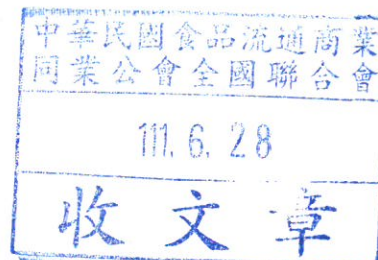 中華民國食品流通商業
同業公會全國聯合會
111. 6. 28
收文章